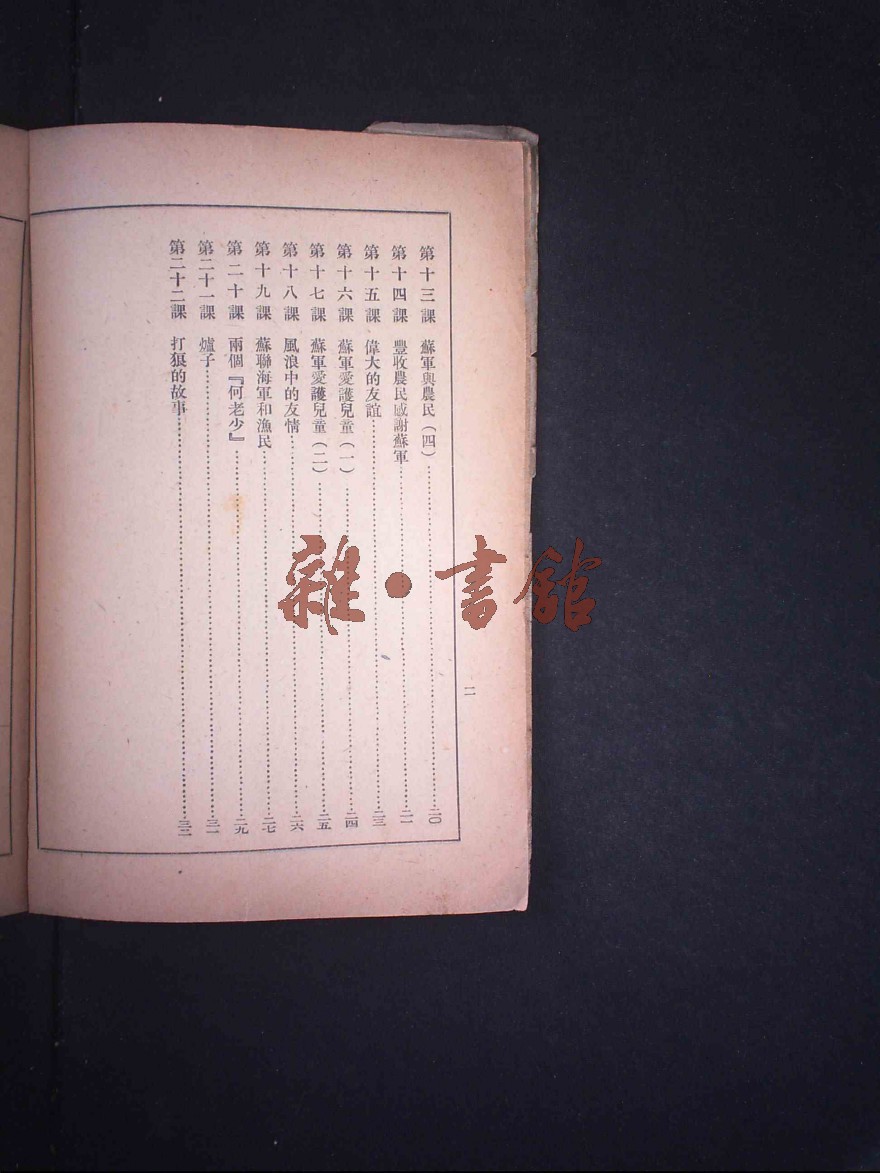 第十三課　蘇軍與農民（四）……二〇
第十四課　豐收農民感謝蘇軍……二一
第十五課　偉大的友誼……二三
第十六課　蘇軍愛護兒童（一）……二四
第十七課　蘇軍愛護兒童（二）……二五
第十八課　風浪中的友情……二六
第十九課　蘇聯海軍和漁民……二七
第二十課　兩個『何老少』……二九
第二十一課　爐子……三一
第二十二課　打狼的故事……三二
二
雜·書館